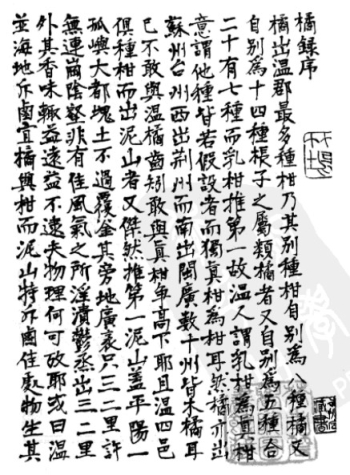 橘錄序
橘出溫郡最多種柑乃其別種柑自別為八種橘又
自別為十四種橙子之屬類橘者又自別為五種合
二十有七種而乳柑推第一故溫人謂乳柑為真柑
意謂他種皆若假設者而獨真柑為柑耳然橘亦出
蘇州台州西出荊州而南出閩廣數十州皆木橘耳
已不敢與溫橘齒矧敢與真柑爭高下耶且溫四邑
俱種柑而出泥山者又傑然推第一泥山蓋平陽一
孤嶼大都塊土不過覆釜其旁地廣袤只三二里許
無連崗陰壑非有佳風氣之所淫漬鬱烝出三二里
外其香味輒益遠益不逮夫物理何可攷耶或曰溫
並海地斥鹵宜橘與柑而泥山特斥鹵佳處物生其